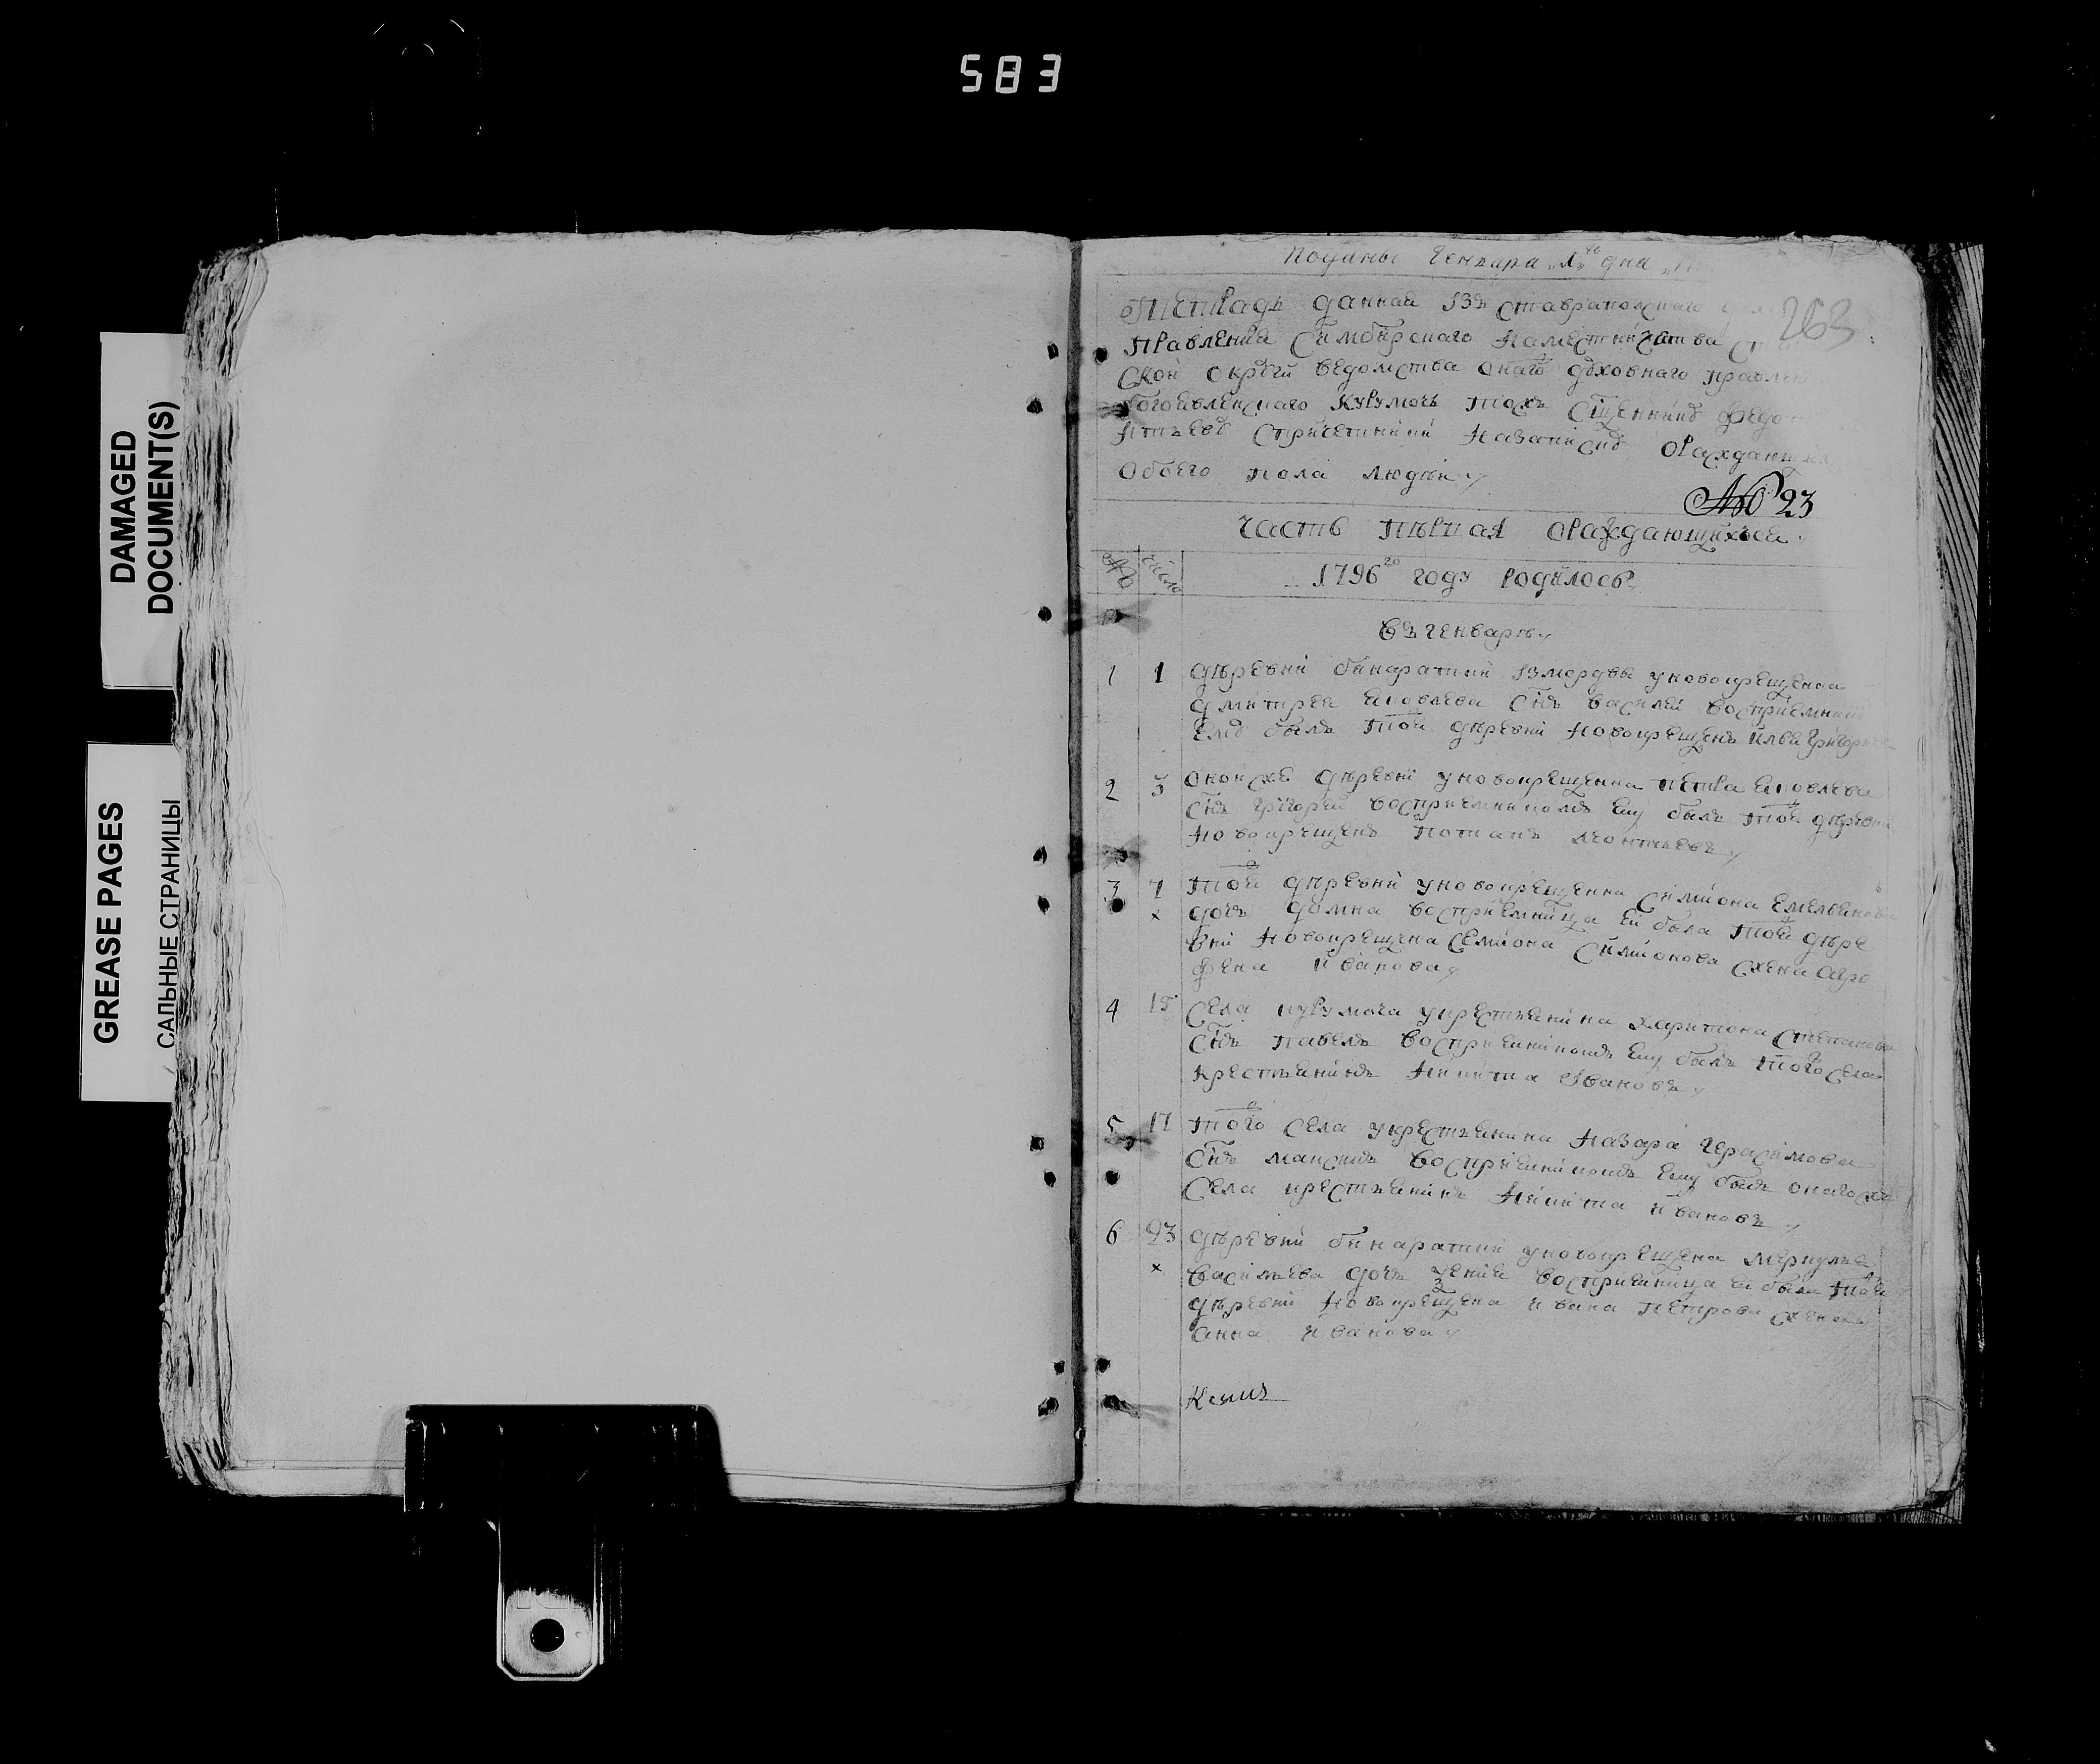 583
DAMAGED
DOCUMENT(S)
GREASE PAGES
САЛЬНЫЕ СТРАНИЦЫ
Поданы Генваря 1 дня
263
Тетрадь данная изъ ставрапольскаго
правления Симбирскаго наместничества
ской округи ведомства онаго духовнаго правлен
богоявленскаго Курумочь тожъ сщенникъ Федо
стричетники написат ораждающи
обоего пола людѣй
№ 23
Часть пѣрная ораждающихся
№ число
1796го году родилось
въ генварѣ
1 1 дѣревни бинаратки измордвы уновокрещенна
дмитрея яковлева снъ василей восприемник
ему былъ той дѣревни новокрещенъ илья григорьев
2 3 оной же дѣревни уновокрещенна петра яковлева
снъ григорей восприемникомъ ему былъ той дѣревни
новокрещенъ потапъ леонтьевъ
3 7 той дѣревни уновокрещенна симиона емельянов
× дочь домна восприемница ей была той дѣре
вни новокрещена семиона симионова жена агро
фена иванова
4 15 Села курумоча укрестьянина харитона степанова
снъ павелъ восприемникомъ ему былъ того села
крестьянинъ никита ивановъ
5 17 того села укрестьянина назара герасимова
снъ максимъ восприемникомъ ему былъ онаго же
села крестьянинъ никита ивановъ
6 23 дѣревни бинаратки уновокрещена меркулья
× васильева дочь ксения восприемница ей была той
дѣревни новокрещена ивана петрова жена
анна иванова